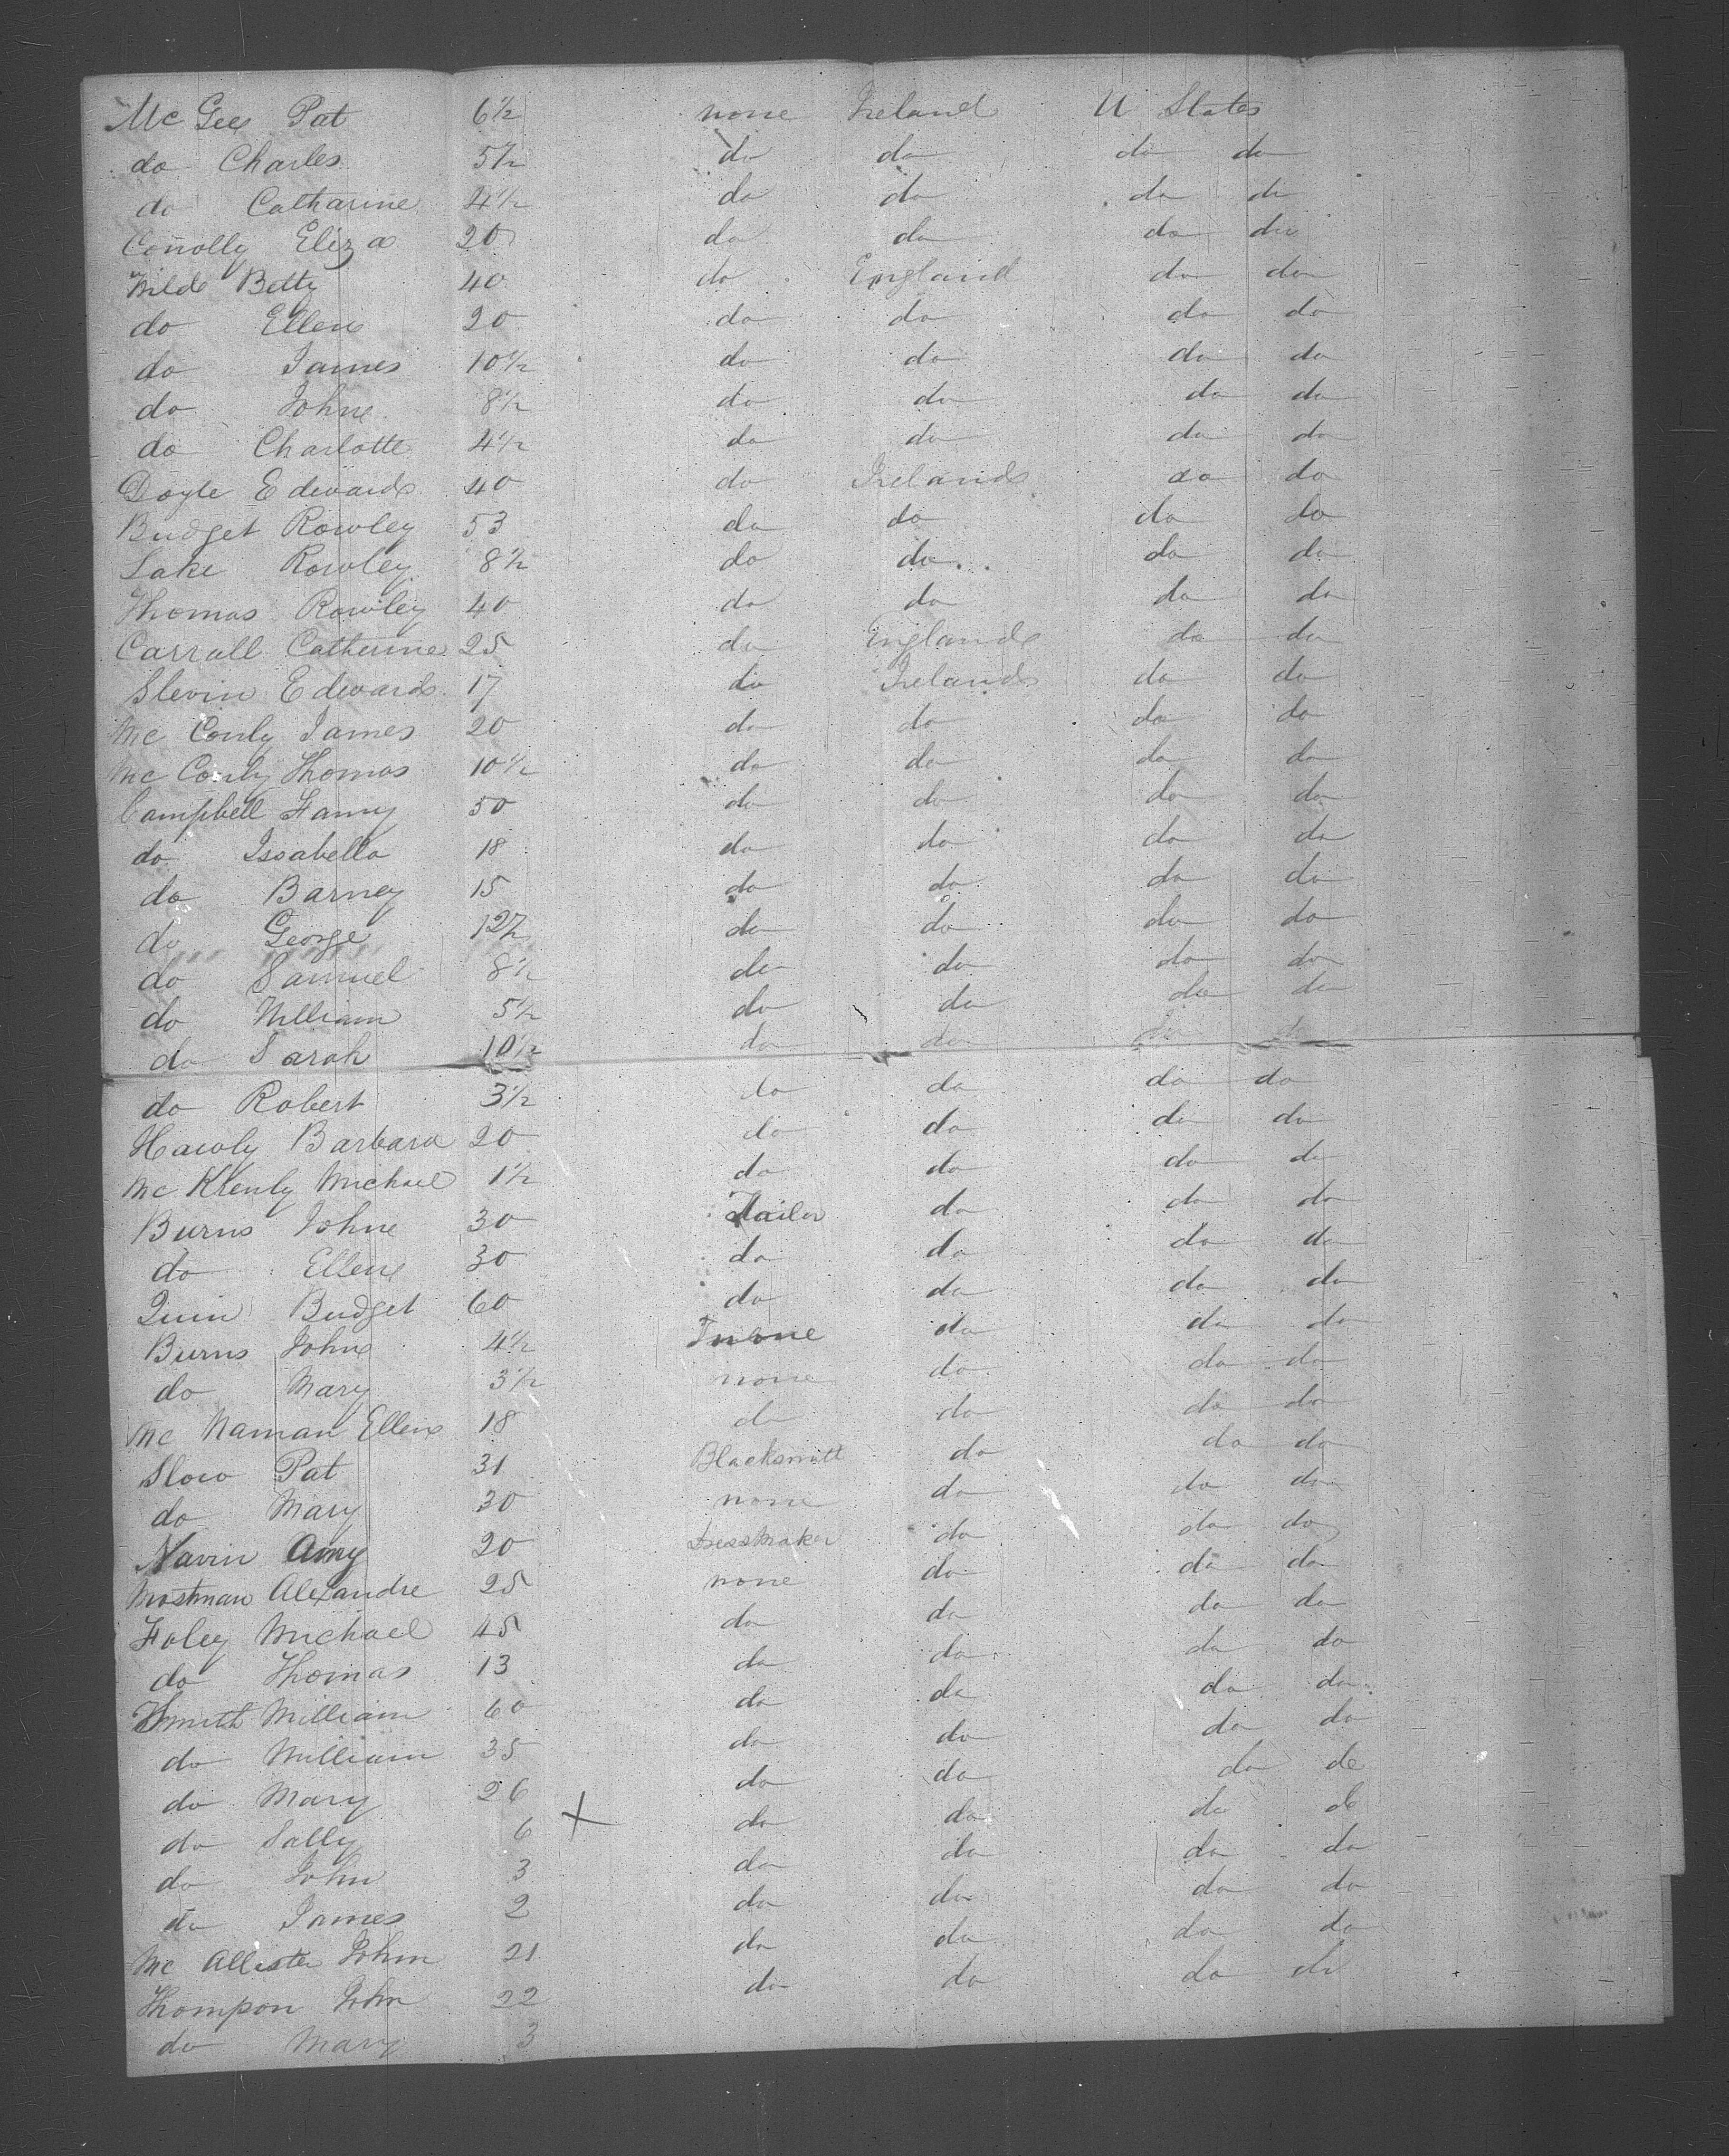 Mc Gee Pat 6½ none Ireland U States
do Charles 5½ do do do do
do Catharine 4½ do do do do
Conolly Eliza 20 do do do do
Wild Betty 40 do England do do
do Ellen 20 do do do do
do James 10½ do do do do
do John 8½ do do do do
do Charlotte 4½ do do do do
Doyle Edward 40 do Ireland do do
Budget Rowley 53 do do do do
Lake Rowley 8½ do do do do
Thomas Rowley 40 do do do do
Carroll Catherine 25 do England do do
Slevin Edward 17 do Ireland do do
Mc Conly James 20 do do do do
Mc Conly Thomas 10½ do do do do
Campbell Fanny 50 do do do do
do Issabella 18 do do do do
do Barney 15 do do do do
do George 12½ do do do do
do Samuel 8½ do do do do
do William 5½ do do do do
do Sarah 10½ do do do do
do Robert 3½ do do do do
Hawly Barbara 20 do do do do
Mc Michael 1½ do do do do
Burns John 30 Tailor do do do
do Ellen 30 do do do do
Quin Budget 60 do do do do
Burns John 4½ none do do do
do Mary 3½ none do do do
Mc Naman Ellen 18 do do do do
Slow Pat 31 Blacksmitt do do do
do Mary 30 none do do do
Navin Amy 20 Dressmaker do do do
Alexandre 25 none do do do
Foley Michael 45 do do do do
do Thomas 13 do do do do
Smith William 60 do do do do
do William 35 do do do do
do Mary 26 do do do do
do Sally 6 + do do do do
do John 3 do do do do
do James 2 do do do do
Mc Allister John 21 do do do do
Thompson John 22 do do do do
do Mary 3